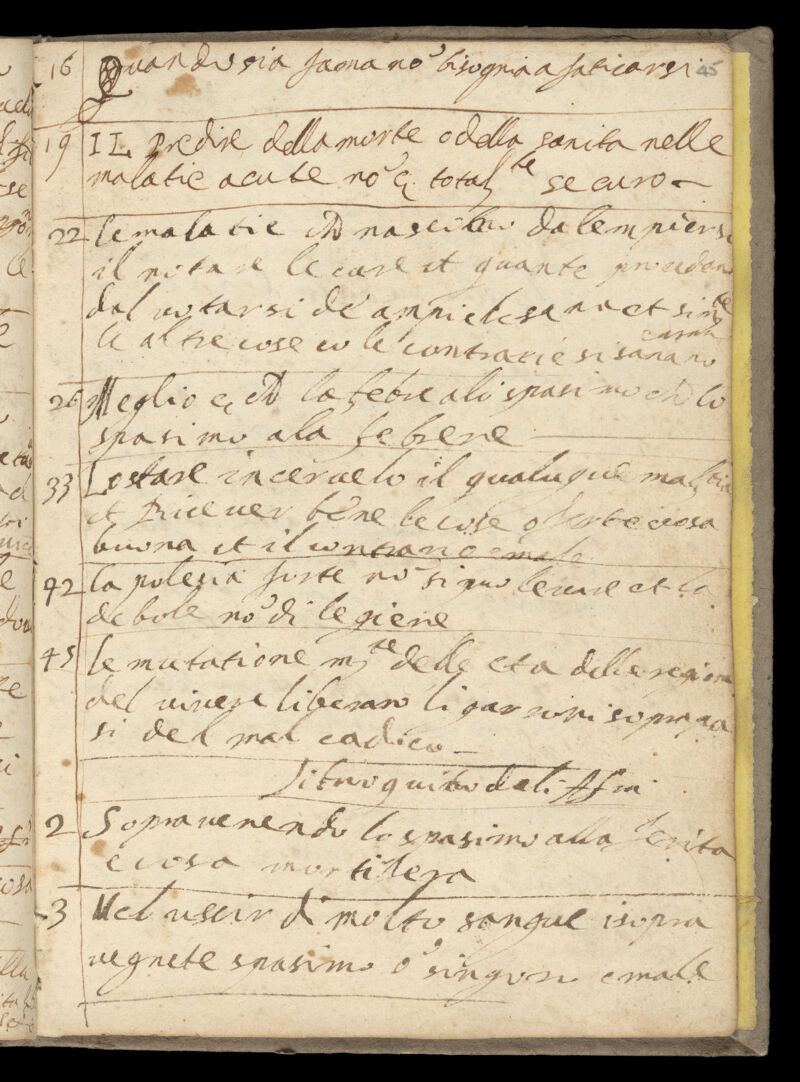 16 Quando sia fama nō bisognia afaticarsi 45
19 IL predire della morte o della sanita nelle
malatie acute nō è total te securo
22 le malatie nascono dalempiersi
il votare le cure et quante procedon
dal votarsi de ampiele sana et sim te
le altre cose co le contrarie si sanano
26 Meglio è la febre alo spasimo lo
spasimo ala febrene
33 Lo stare incervelo il qualuque malatia
et Ricever bene le cose oferte cosa
buona et il contrario e male
42 la polesia forte nō si puo levare et la
debole nō di legiere
45 le mutatione m te delle eta delle regioni
del vivere liberano li garzoni sopra
si del mal caduco
libro quito deli Affmi
2 Sopravenendo lo spasimo alla ferita
e cosa mortifera
3 Nel uscir di molto sangue isopra
vegnete spasimo ō singozo e male